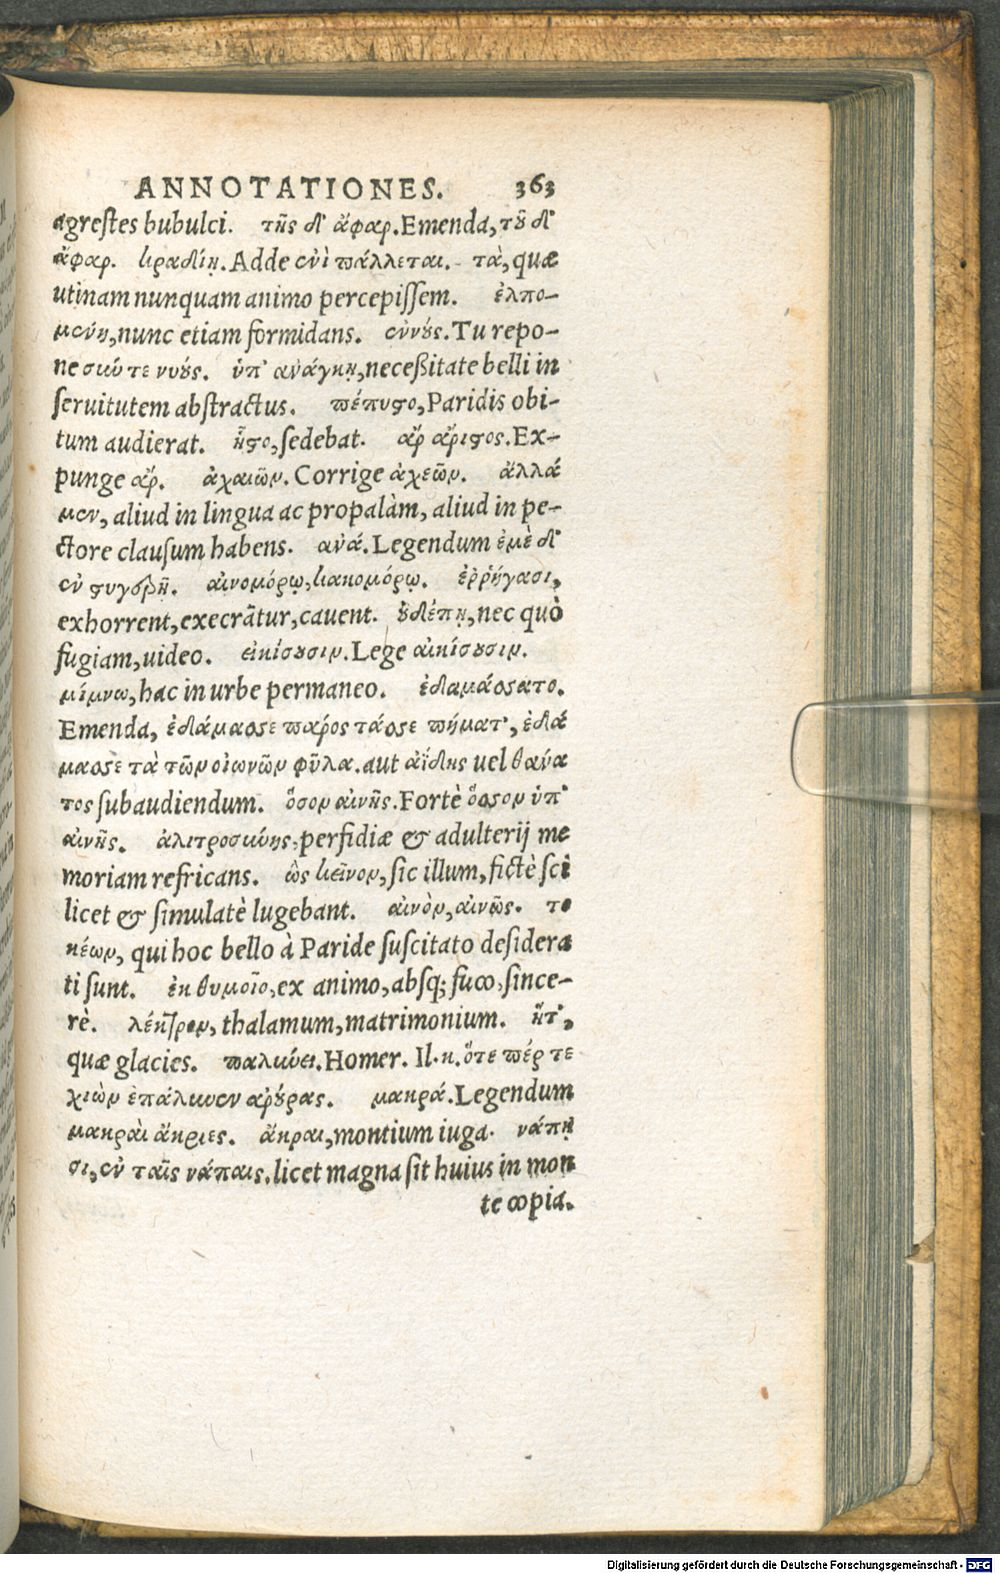 ANNOTATIONES. 363
agrestes bubulci. τῆς δ' ἄφαρ. Emenda, τοῦ δ'
ἄφαρ. κραδίη. Adde ἐνὶ πάλλεται. τὰ, quæ
utinam nunquam animo percepissem. ἐλπο-
μένη, nunc etiam formidans. ἐννούς. Tu repo-
ne σιών τε νυούς. ὑπ' ἀνάγκῃ, neceßitate belli in
seruitutem abstractus. πέπυστο, Paridis obi-
tum audierat. ἧστο, sedebat. ἂρ ἄριστος. Ex-
punge ἄρ. ἀχαιῶν. Corrige ἀχεῶν. ἄλλά
μεν, aliud in lingua ac propalàm, aliud in pe-
ctore clausum habens. ἀνά. Legendum ἐμὲ δ'
ἐν στυγερῇ. αἰνομόρῳ, κακομόρῳ. ἐῤῥήγασι,
exhorrent, execrãtur, cauent. οὐδέπῃ, nec quò
fugiam, uideo. εἰκίσουσιν. Lege αἰκίσουσιν.
μίμνω, hac in urbe permaneo. ἐδαμάσσατο.
Emenda, ἐδάμασσε πάρος τάσσε πήματ', ἐδά
μασσε τὰ τῶν οἰωνῶν φῦλα. aut ἀΐδης uel θάνα
τος subaudiendum. ὅσον αἰνῆς. Fortè ὅσσον ὑπ'
αἰνῆς. ἀλιτροσύνης, perfidiæ & adulterij me
moriam refricans. ὣς κεῖνον, sic illum, fictè sci
licet & simulatè lugebant. αἰνὸν, αἰνῶς. το
κέων, qui hoc bello à Paride suscitato desidera
ti sunt. ἐκ θυμοῖο, ex animo, absq; fuco, since-
rè. λέκτρον, thalamum, matrimonium. ἥτ',
quæ glacies. παλκύνει. Homer. Il. κ. ὅτε πέρ τε
χιὼν ἐπάλκυνεν ἀρούρας. μακρά. Legendum
μακραὶ ἄκριες. ἄκραι, montium iuga. νάπῃ
σι, ἐν ταῖς νάπαις. licet magna sit huius in mon
te copia.
Digitalisierung gefördert durch die Deutsche Forschungsgemeinschaft - DFG